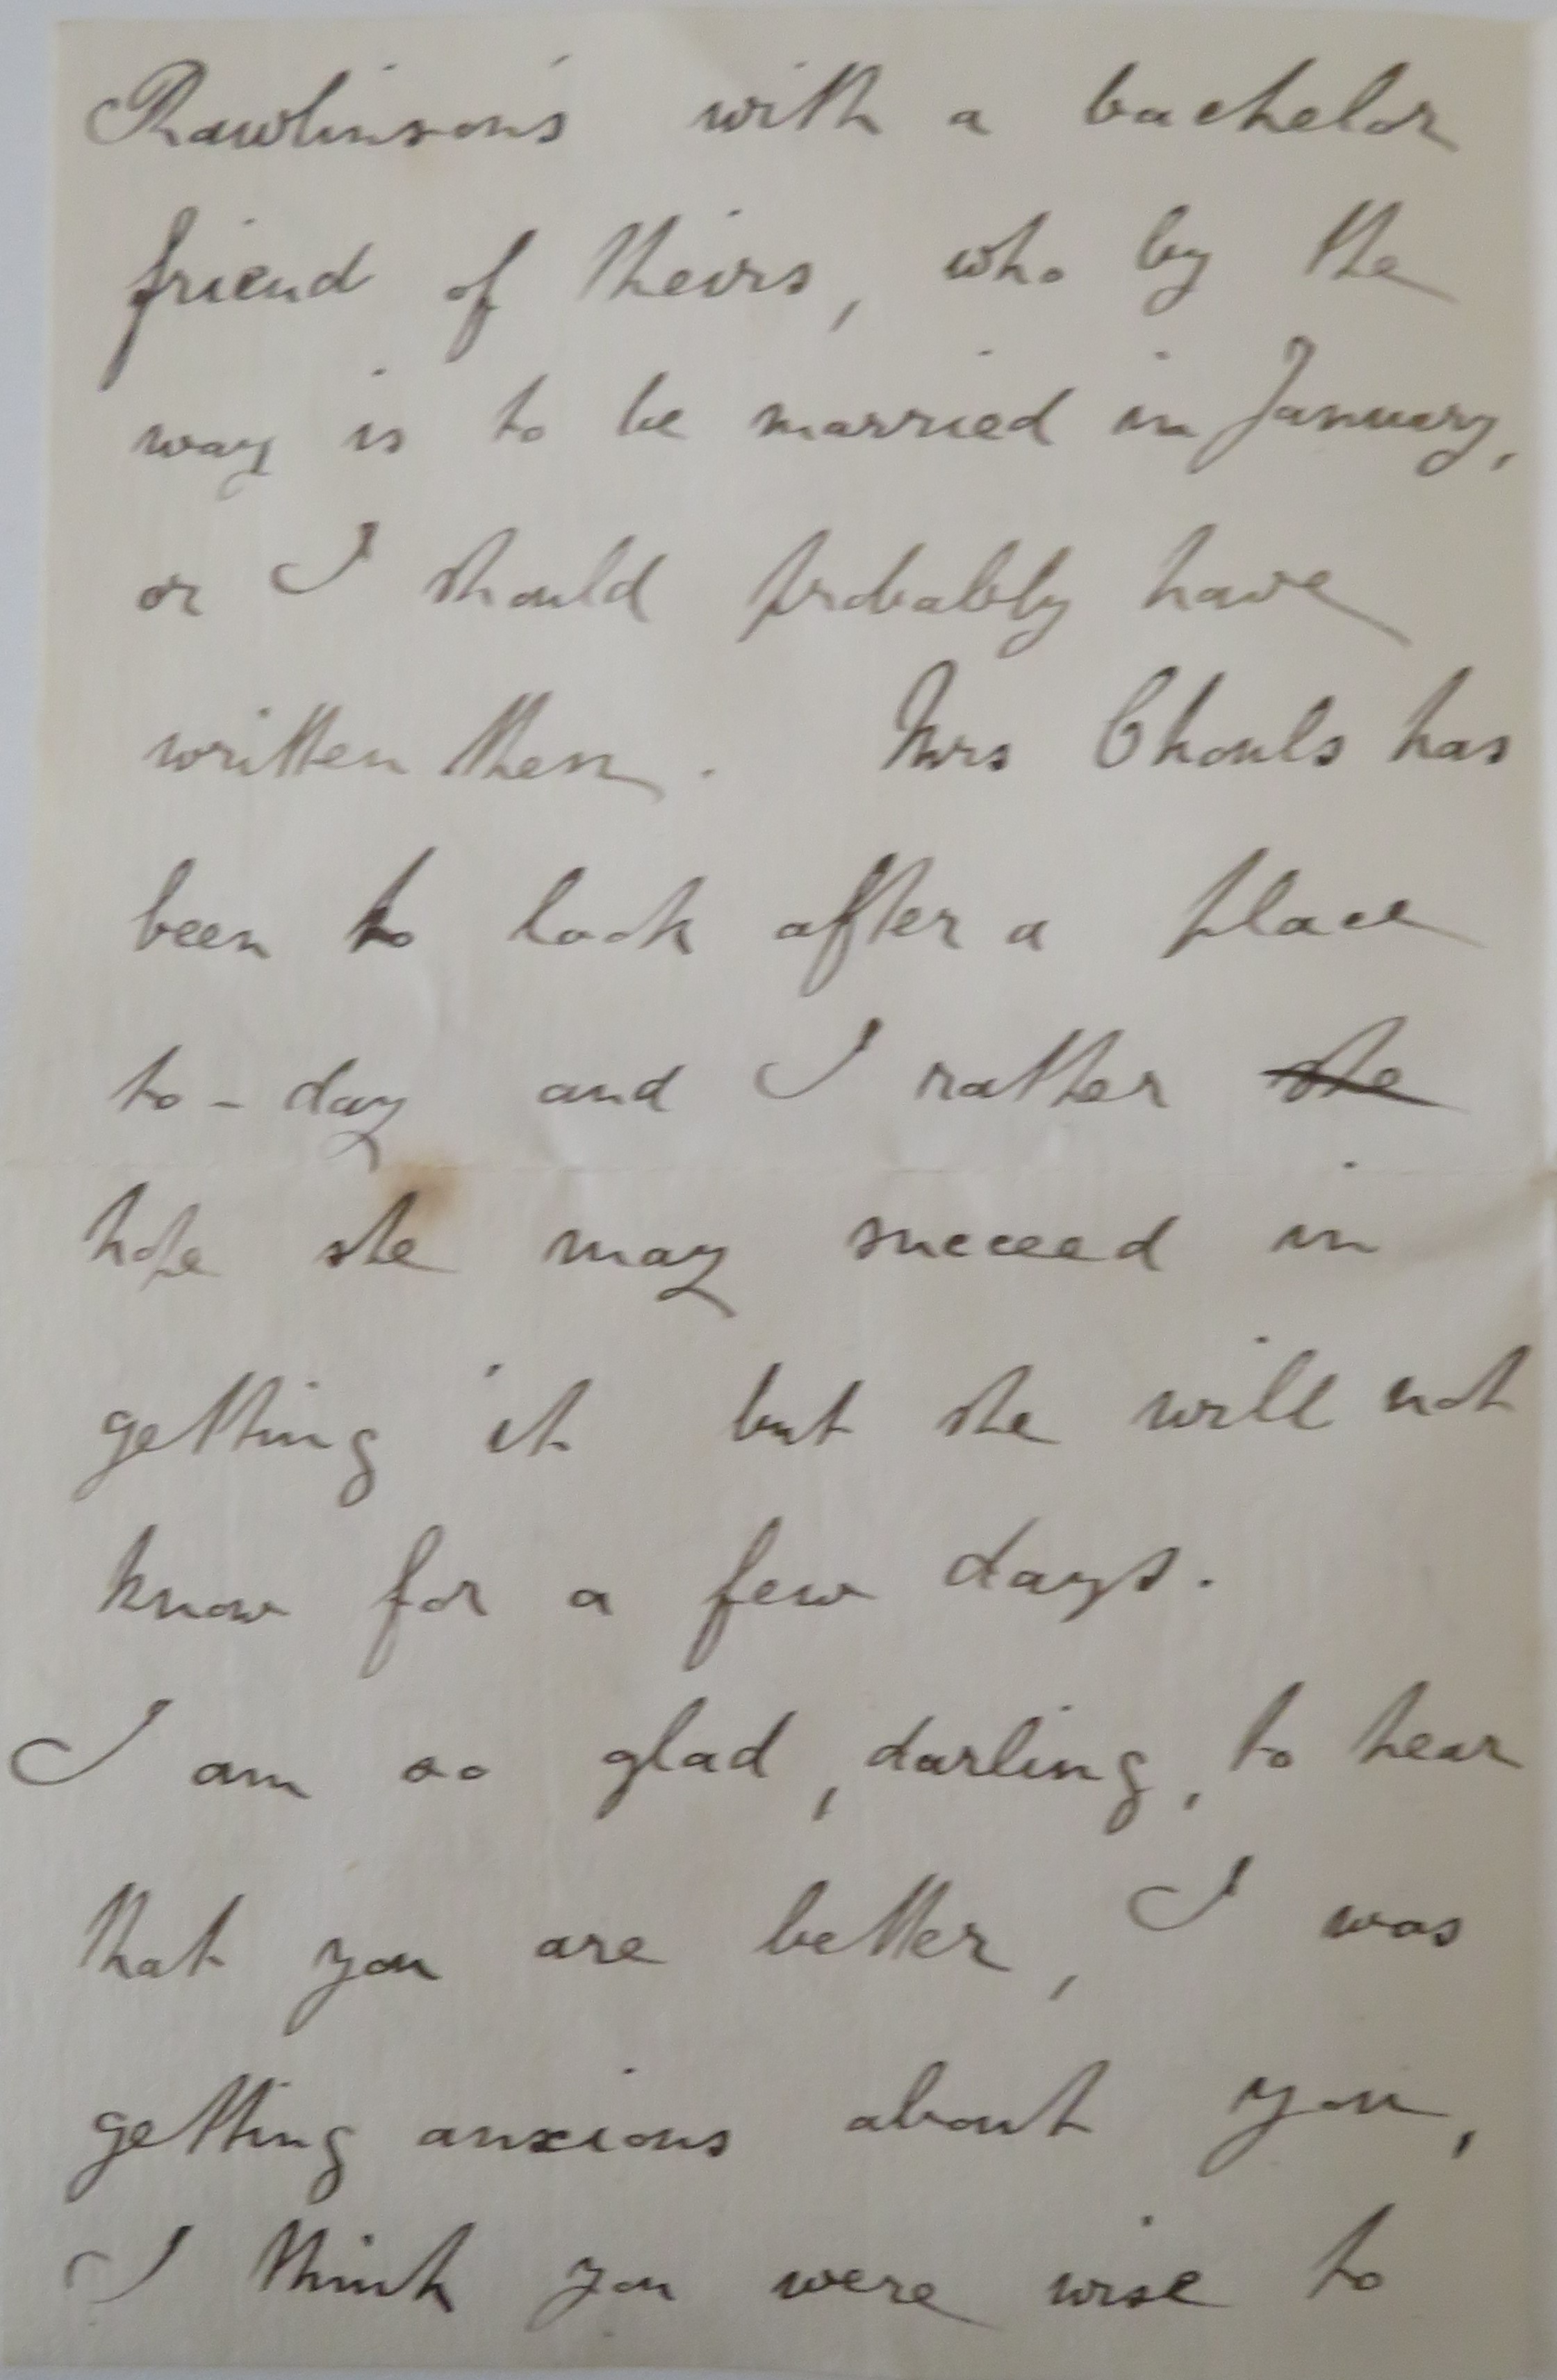 Rawlinson's with a bachelor
friend of theirs, who by the
way is to be married in January,
or I should probably have
written then. Mrs Chouls has
been to look after a place
to-day and I rather she
hope she may succeed in
getting it but she will not
know for a few days.
I am so glad, darling, to hear
that you are better, I was
getting anxious about you,
I think you were wise to